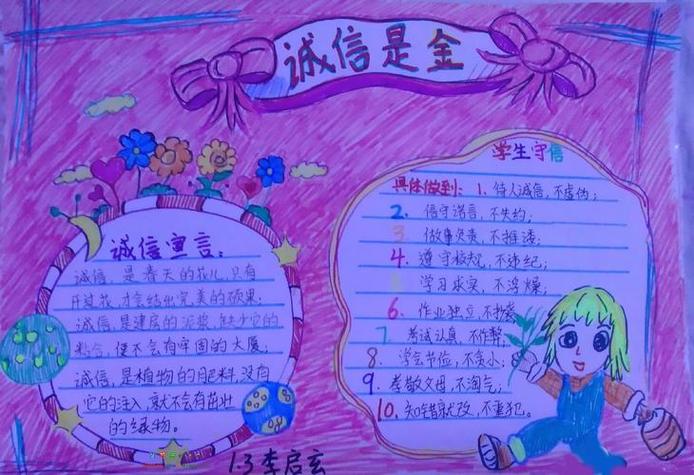 诚信是金
诚信宣言:
诚信,是春天的花儿,只有
开过花,才会结出完美的硕果;
诚信,是建房的泥浆,缺少它的
粘合,便不会有牢固的大厦;
诚信,是植物的肥料,没有
它的注入,就不会有茁壮
的绿物。
学生守信
具体做到: 1. 待人诚信,不虚伪;
2. 信守诺言,不失约;
3. 做事负责,不推诿;
4. 遵守校规,不违纪;
学习求实,不浮燥;
6. 作业独立,不抄袭
7 考试认真,不作弊;
8. 学会节俭,不贪小;
9. 孝敬父母,不淘气;
10. 知错就改,不重犯。
1.3 李启玄